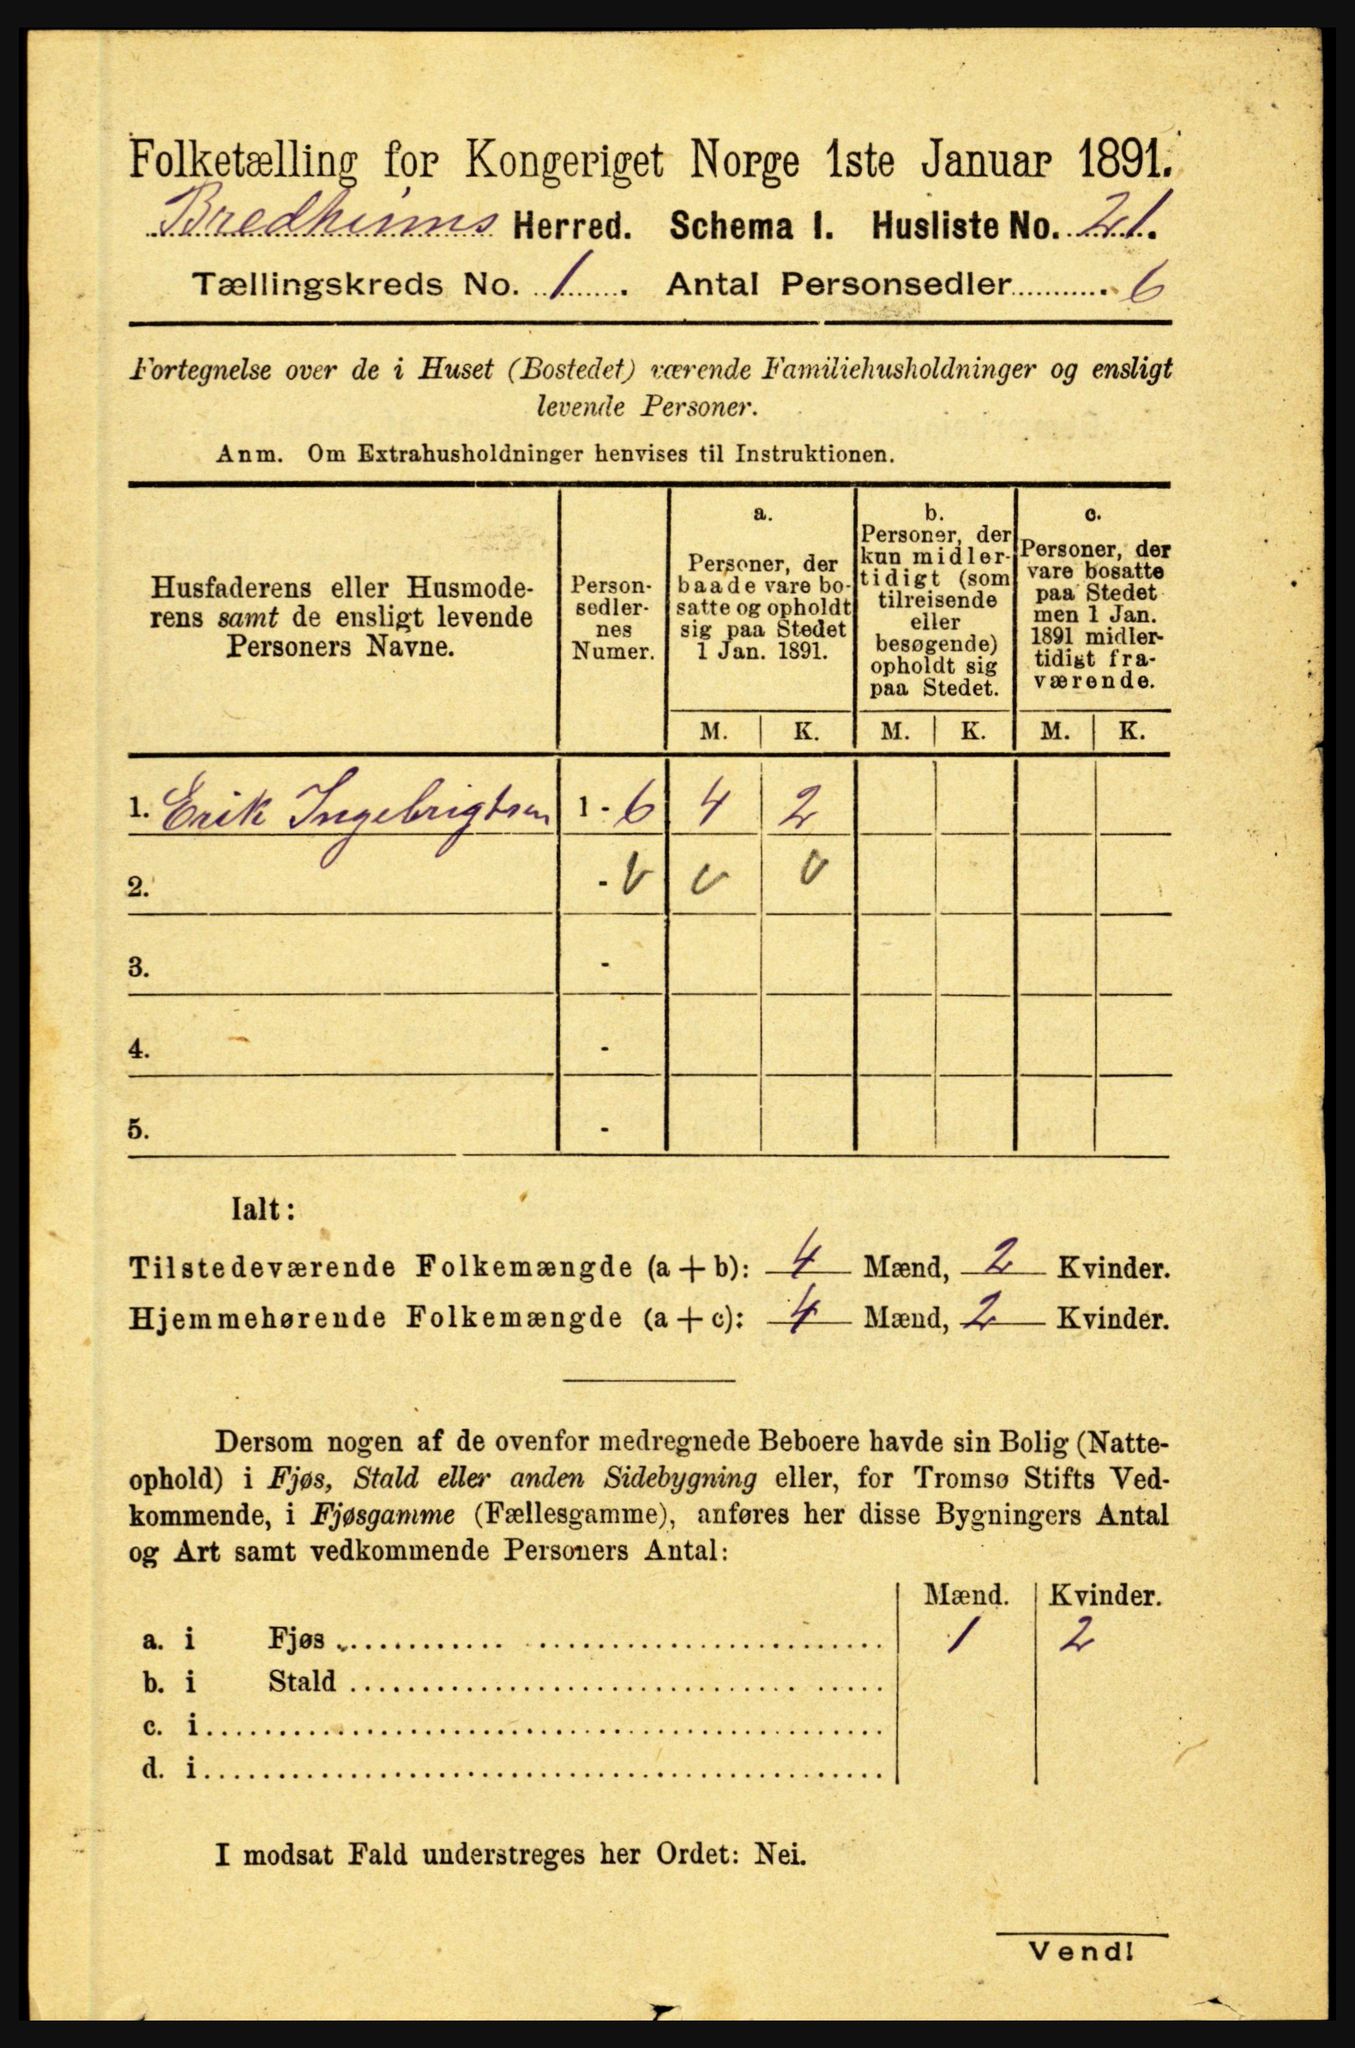 Folketælling for Kongeriget Norge 1ste Januar 1891.
Bredheims Herred. Schema I. Husliste No. 21.
Tællingskreds No. 1. Antal Personsedler 6
Fortegnelse over de i Huset (Bostedet) værende Familiehusholdninger og ensligt
levende Personer.
Anm. Om Extrahusholdninger henvises til Instruktionen.
Husfaderens eller Husmode-
rens samt de ensligt levende
Personers Navne.
Person-
sedler-
nes
Numer.
a.
Personer, der
baade vare bo-
satte og opholdt
sig paa Stedet
1 Jan. 1891.
b.
Personer, der
kun midler-
tidigt (som
tilreisende
eller
besøgende)
opholdt sig
paa Stedet.
c.
Personer, der
vare bosatte
paa Stedet
men 1 Jan.
1891 midler-
tidigt fra-
værende.
M. K. M. K. M. K.
1. Erik Ingebrigtsen 1 - 6 4 2
2. -
3. -
4. -
5. -
Ialt:
Tilstedeværende Folkemængde (a + b): 4 Mænd, 2 Kvinder.
Hjemmehørende Folkemængde (a + c): 4 Mænd, 2 Kvinder.
Dersom nogen af de ovenfor medregnede Beboere havde sin Bolig (Natte-
ophold) i Fjøs, Stald eller anden Sidebygning eller, for Tromsø Stifts Ved-
kommende, i Fjøsgamme (Fællesgamme), anføres her disse Bygningers Antal
og Art samt vedkommende Personers Antal:
Mænd. Kvinder.
a. i Fjøs 1 2
b. i Stald
c. i
d. i
I modsat Fald understreges her Ordet: Nei.
Vend!